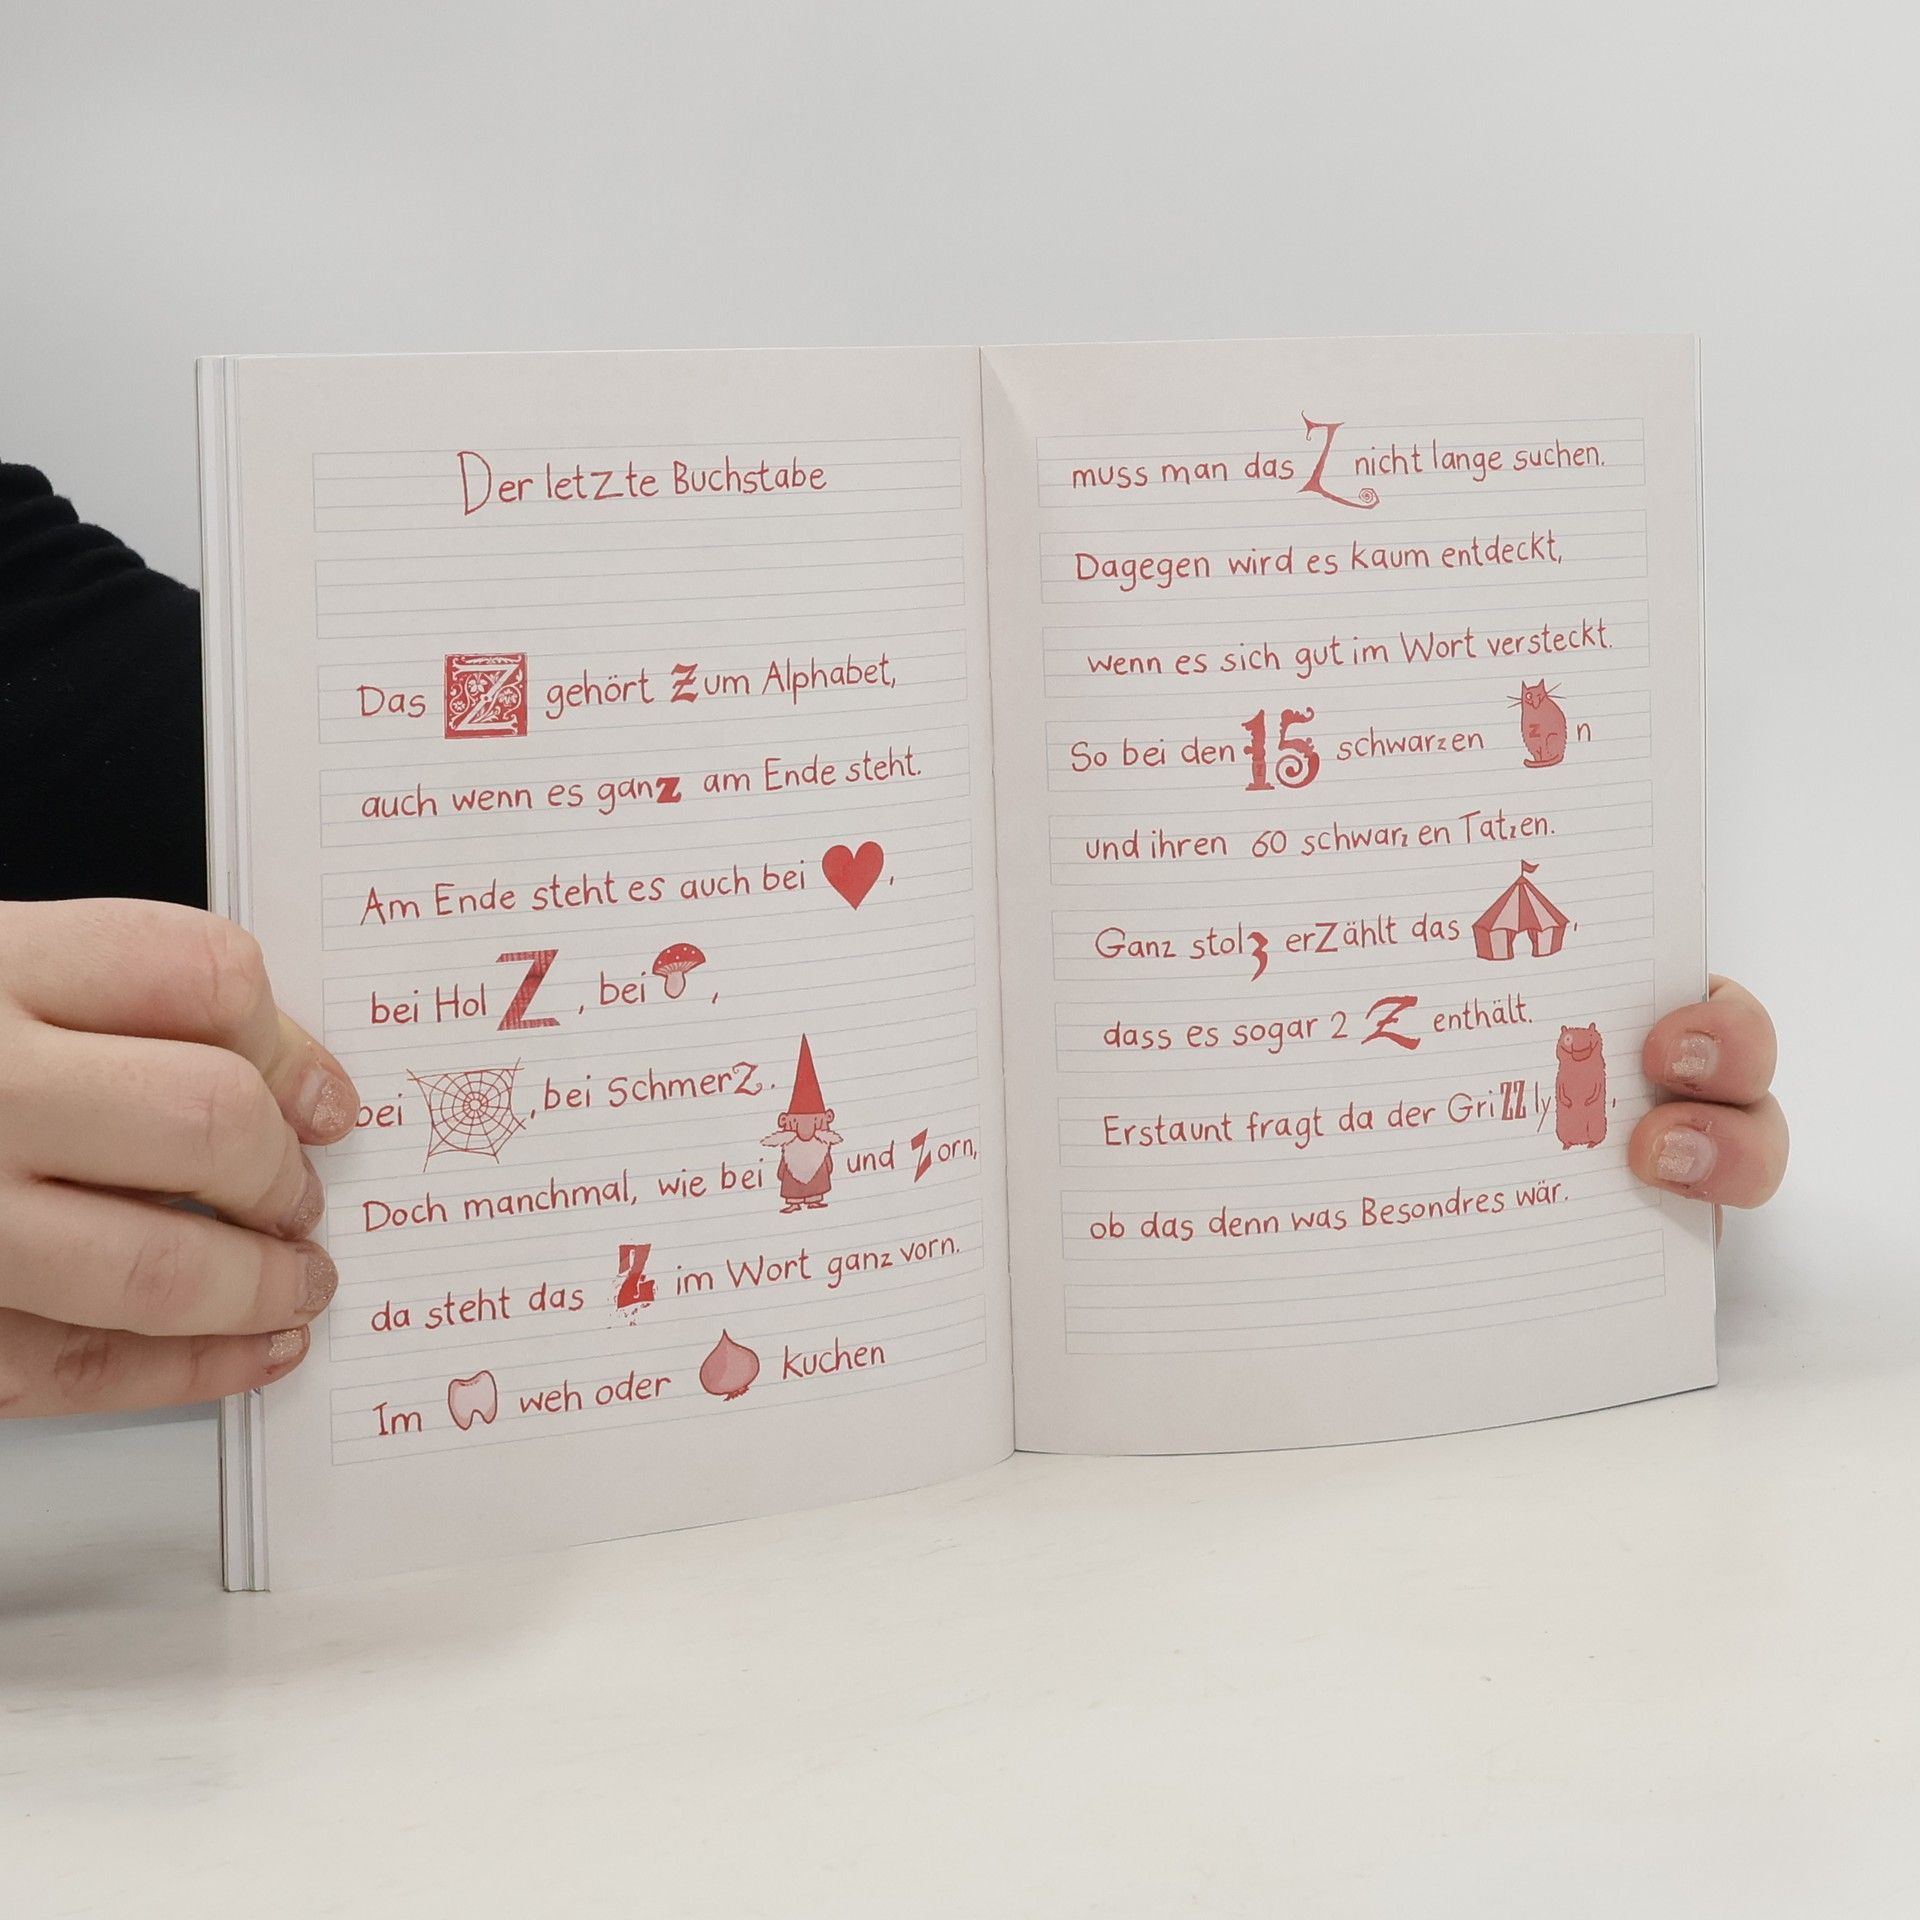 Der letzte Buchstabe
Das Z gehört Zum Alphabet,
auch wenn es ganz am Ende steht.
Am Ende steht es auch bei ,
bei HolZ, bei ,
bei , bei SchmerZ.
Doch manchmal, wie bei und Zorn,
da steht das Z im Wort ganz vorn.
Im weh oder kuchen
muss man das Z nicht lange suchen.
Dagegen wird es kaum entdeckt,
wenn es sich gut im Wort versteckt.
So bei den 15 schwarzen z n
und ihren 60 schwarzen Tatzen.
Ganz stolz erZählt das ,
dass es sogar 2 Z enthält.
Erstaunt fragt da der GriZZly ,
ob das denn was Besondres wär.